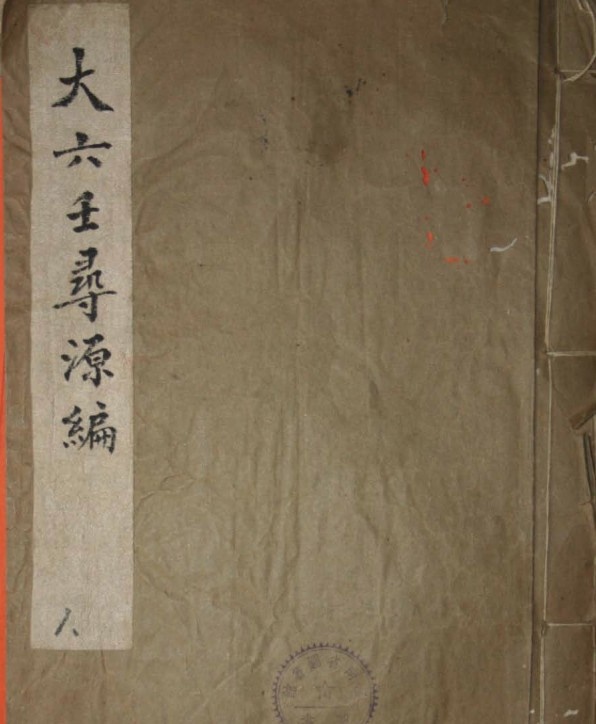 大六壬尋源編
人